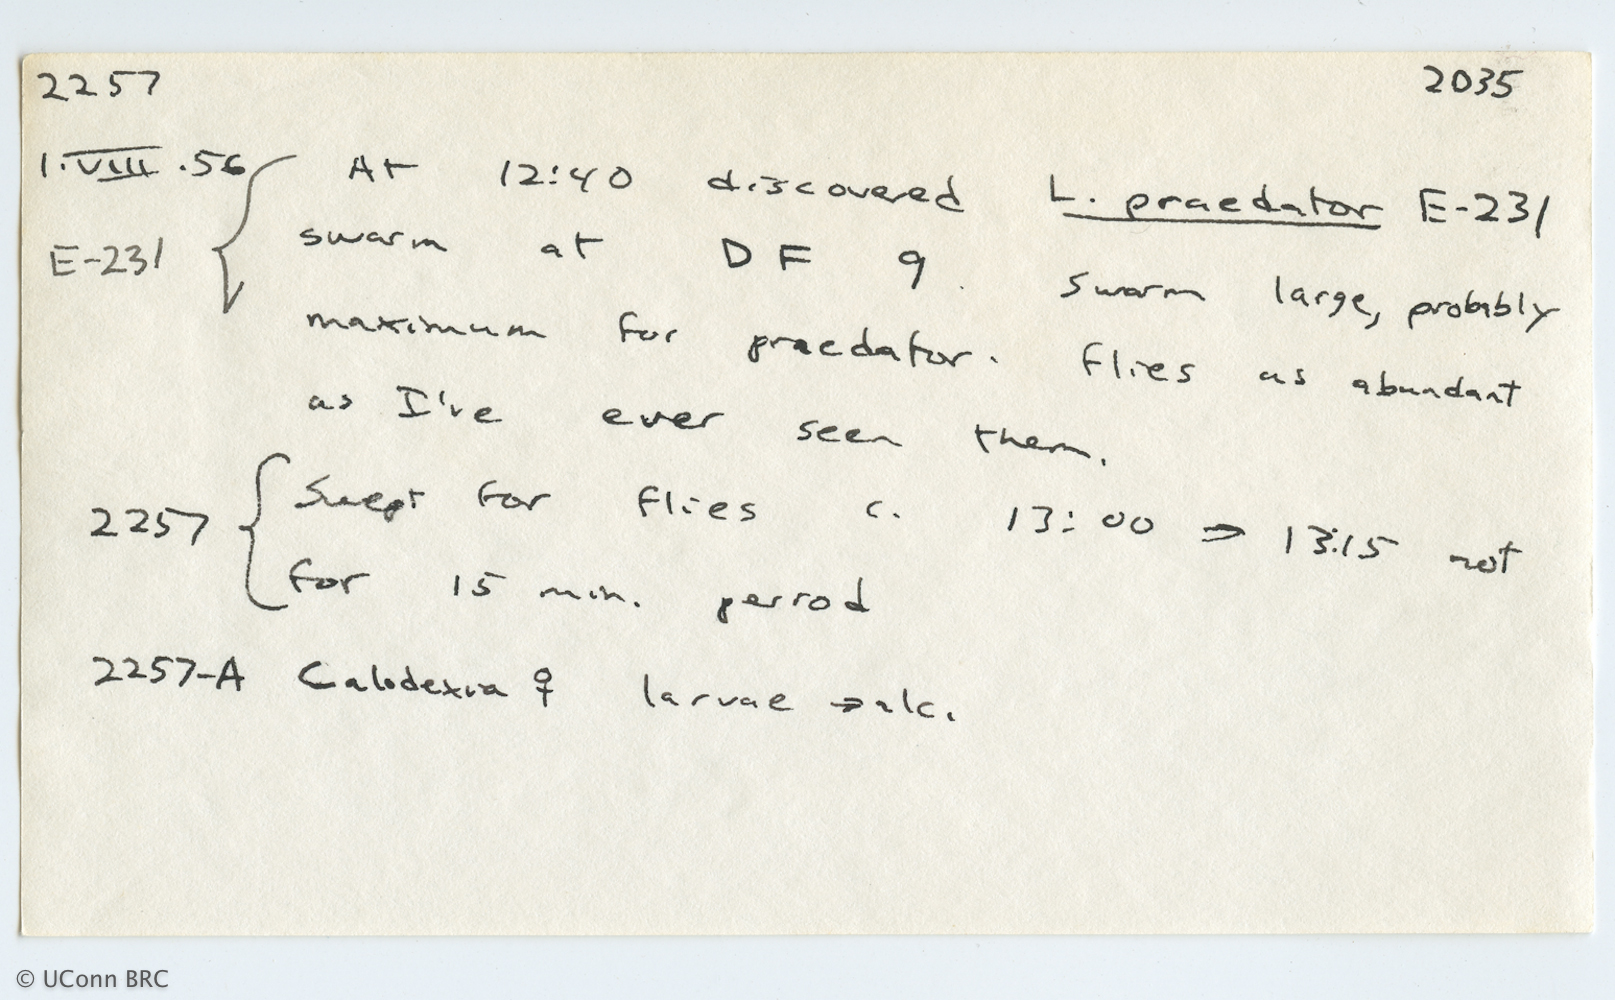 2257 2035
1.VIII.56 At 12:40 discovered L. praedator E-231
E-231 swarm at DF 9. Swarm large, probably
maximum for praedator. Flies as abundant
as I've ever seen them.
2257 Swept for flies c. 13:00 → 13:15 not
for 15 min. period
2257-A Calodexia ♀ larvae → alc.
© UConn BRC